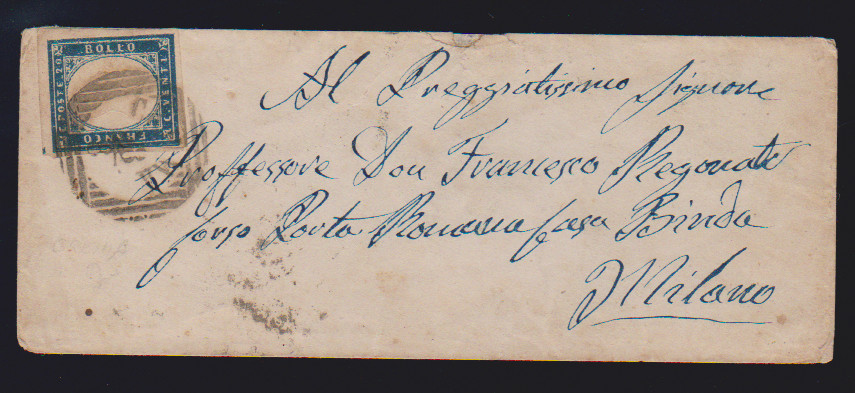 BOLLO
C. POSTE 20
C. VENTI
FRANCO
Al Preggiatissimo Signore
Proffessore Don Francesco Regonati
Corso Porta Romana Casa Binda
Milano